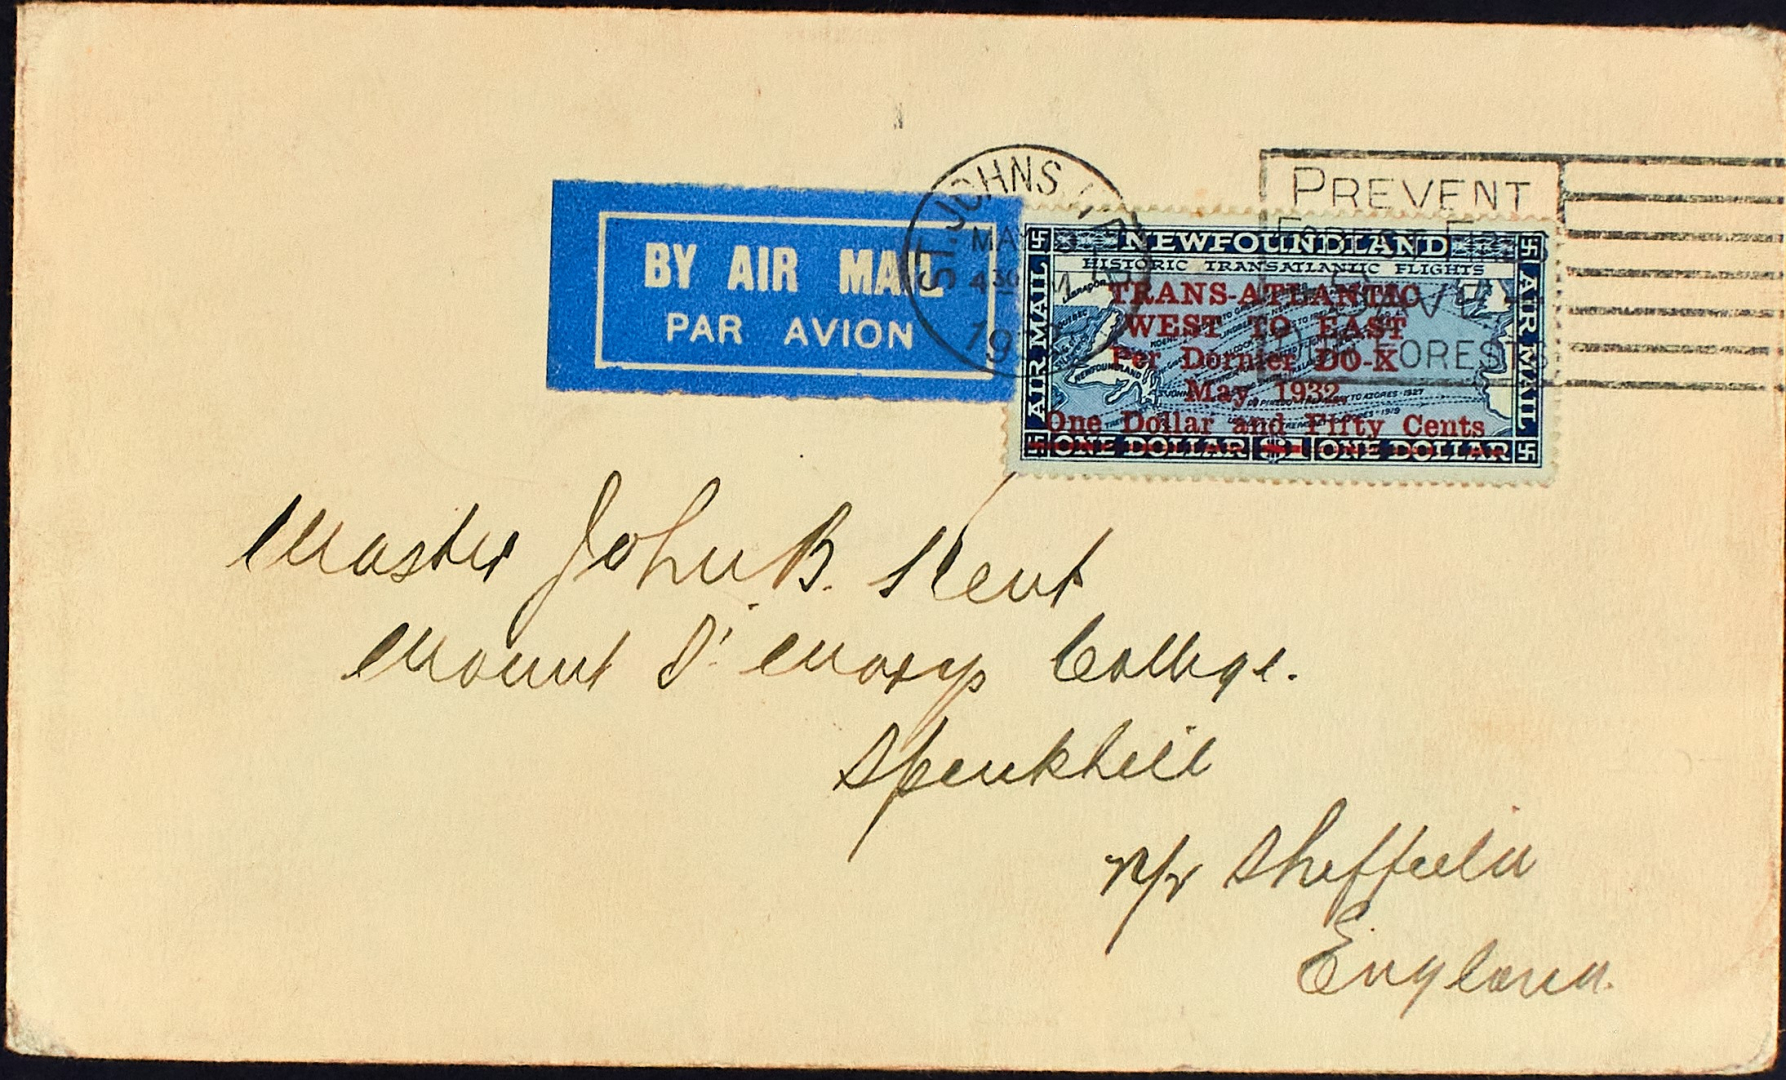 BY AIR MAIL
PAR AVION
ST. JOHNS
MA
4 30 M
19
PREVENT
SAVE
FORESTS
NEWFOUNDLAND
HISTORIC TRANSATLANTIC FLIGHTS
AIR MAIL
AIR MAIL
LABRADOR
QUEBEC
NEWFOUNDLAND
TRANS-ATLANTIC
WEST TO EAST
Per Dornier DO-X
May, 1932
One Dollar and Fifty Cents
ONE DOLLAR $1 ONE DOLLAR
Master John B. Kent
Mount St Mary's College.
Spinkhill
n/r Sheffield
England.